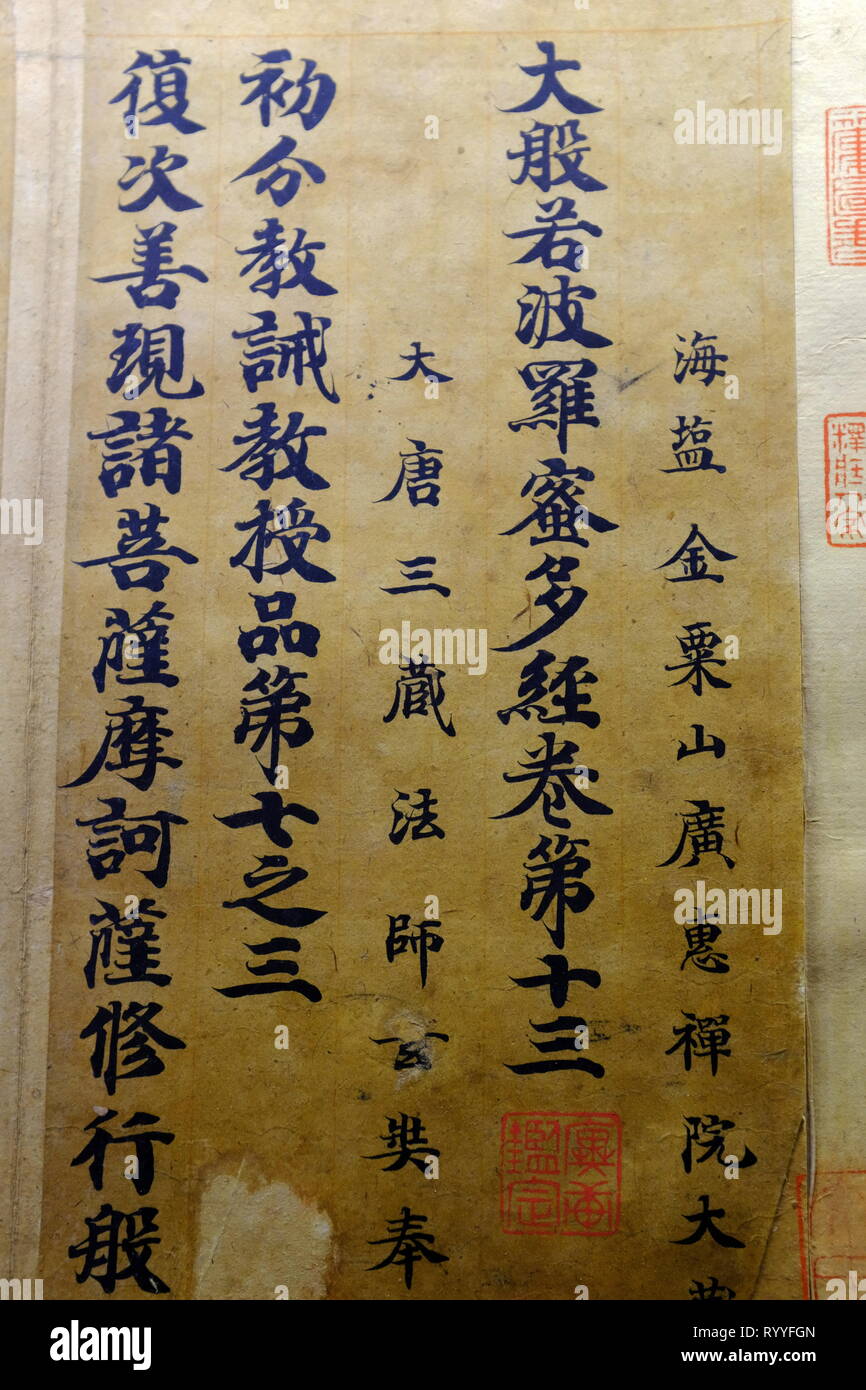 海塩金粟山廣惠禪院大
大般若波羅蜜多經卷第十三
大唐三藏法師玄奘奉
初分教誡教授品第七之三
復次善現諸菩薩摩訶薩修行般
alamy
Image ID: RYYFGN
www.alamy.com